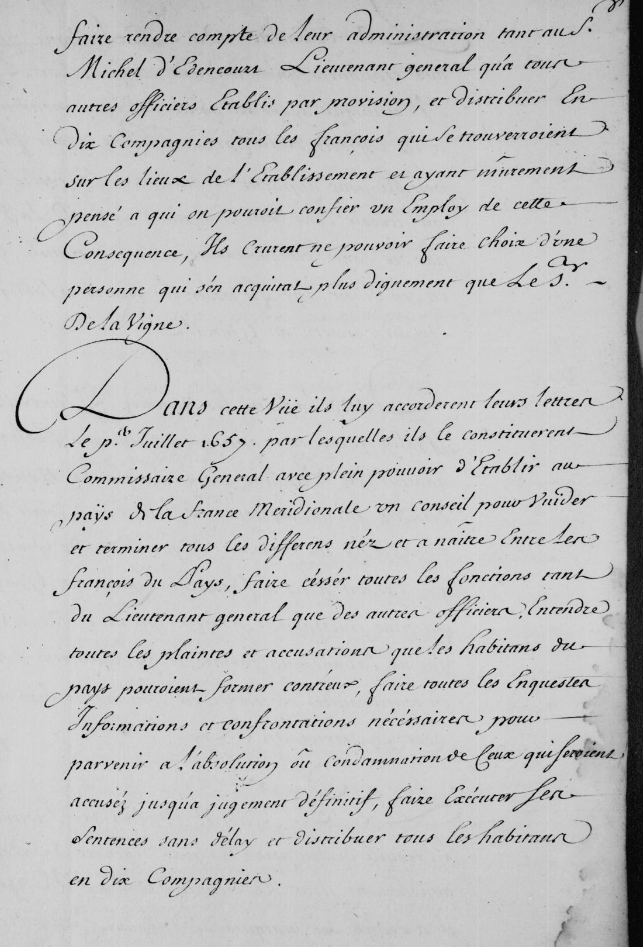 faire rendre compte de leur administration tant au S.r
Michel d'Edencourt Lieutenant general qu'a tous
autres officiers Etablis par provision, et distribuer En
dix Compagnies tous les françois qui se trouverroient
sur les lieux de l'Etablissement et ayant mûrement
pensé a qui on pouroit confier un Employ de cette
Consequence, Ils crurent ne pouvoir faire choix d'une
personne qui s'en acquitat plus dignement que Le S.r
De la Vigne.
Dans cette Vüe ils luy accorderent leurs lettres
Le p.er Juillet 1657. par lesquelles ils le constituerent
Commissaire General avec plein pouvoir d'Etablir au
païs de la france Meridionale un conseil pour Vuider
et terminer tous les differens néz et a naître Entre les
françois du Pays, faire césser toutes les fonctions tant
du Lieutenant general que des autres officiers, Entendre
toutes les plaintes et accusations que les habitans du
pays pouroient former contr'eux, faire toutes les Enquestes
Informations et confrontations nécéssaires pour
parvenir a l'absolution oû condamnation de Ceux qui seroient
accuséz jusqu'a jugement définitif, faire Exécuter ses
Sentences sans délay et distribuer tous les habitans
en dix Compagnies.